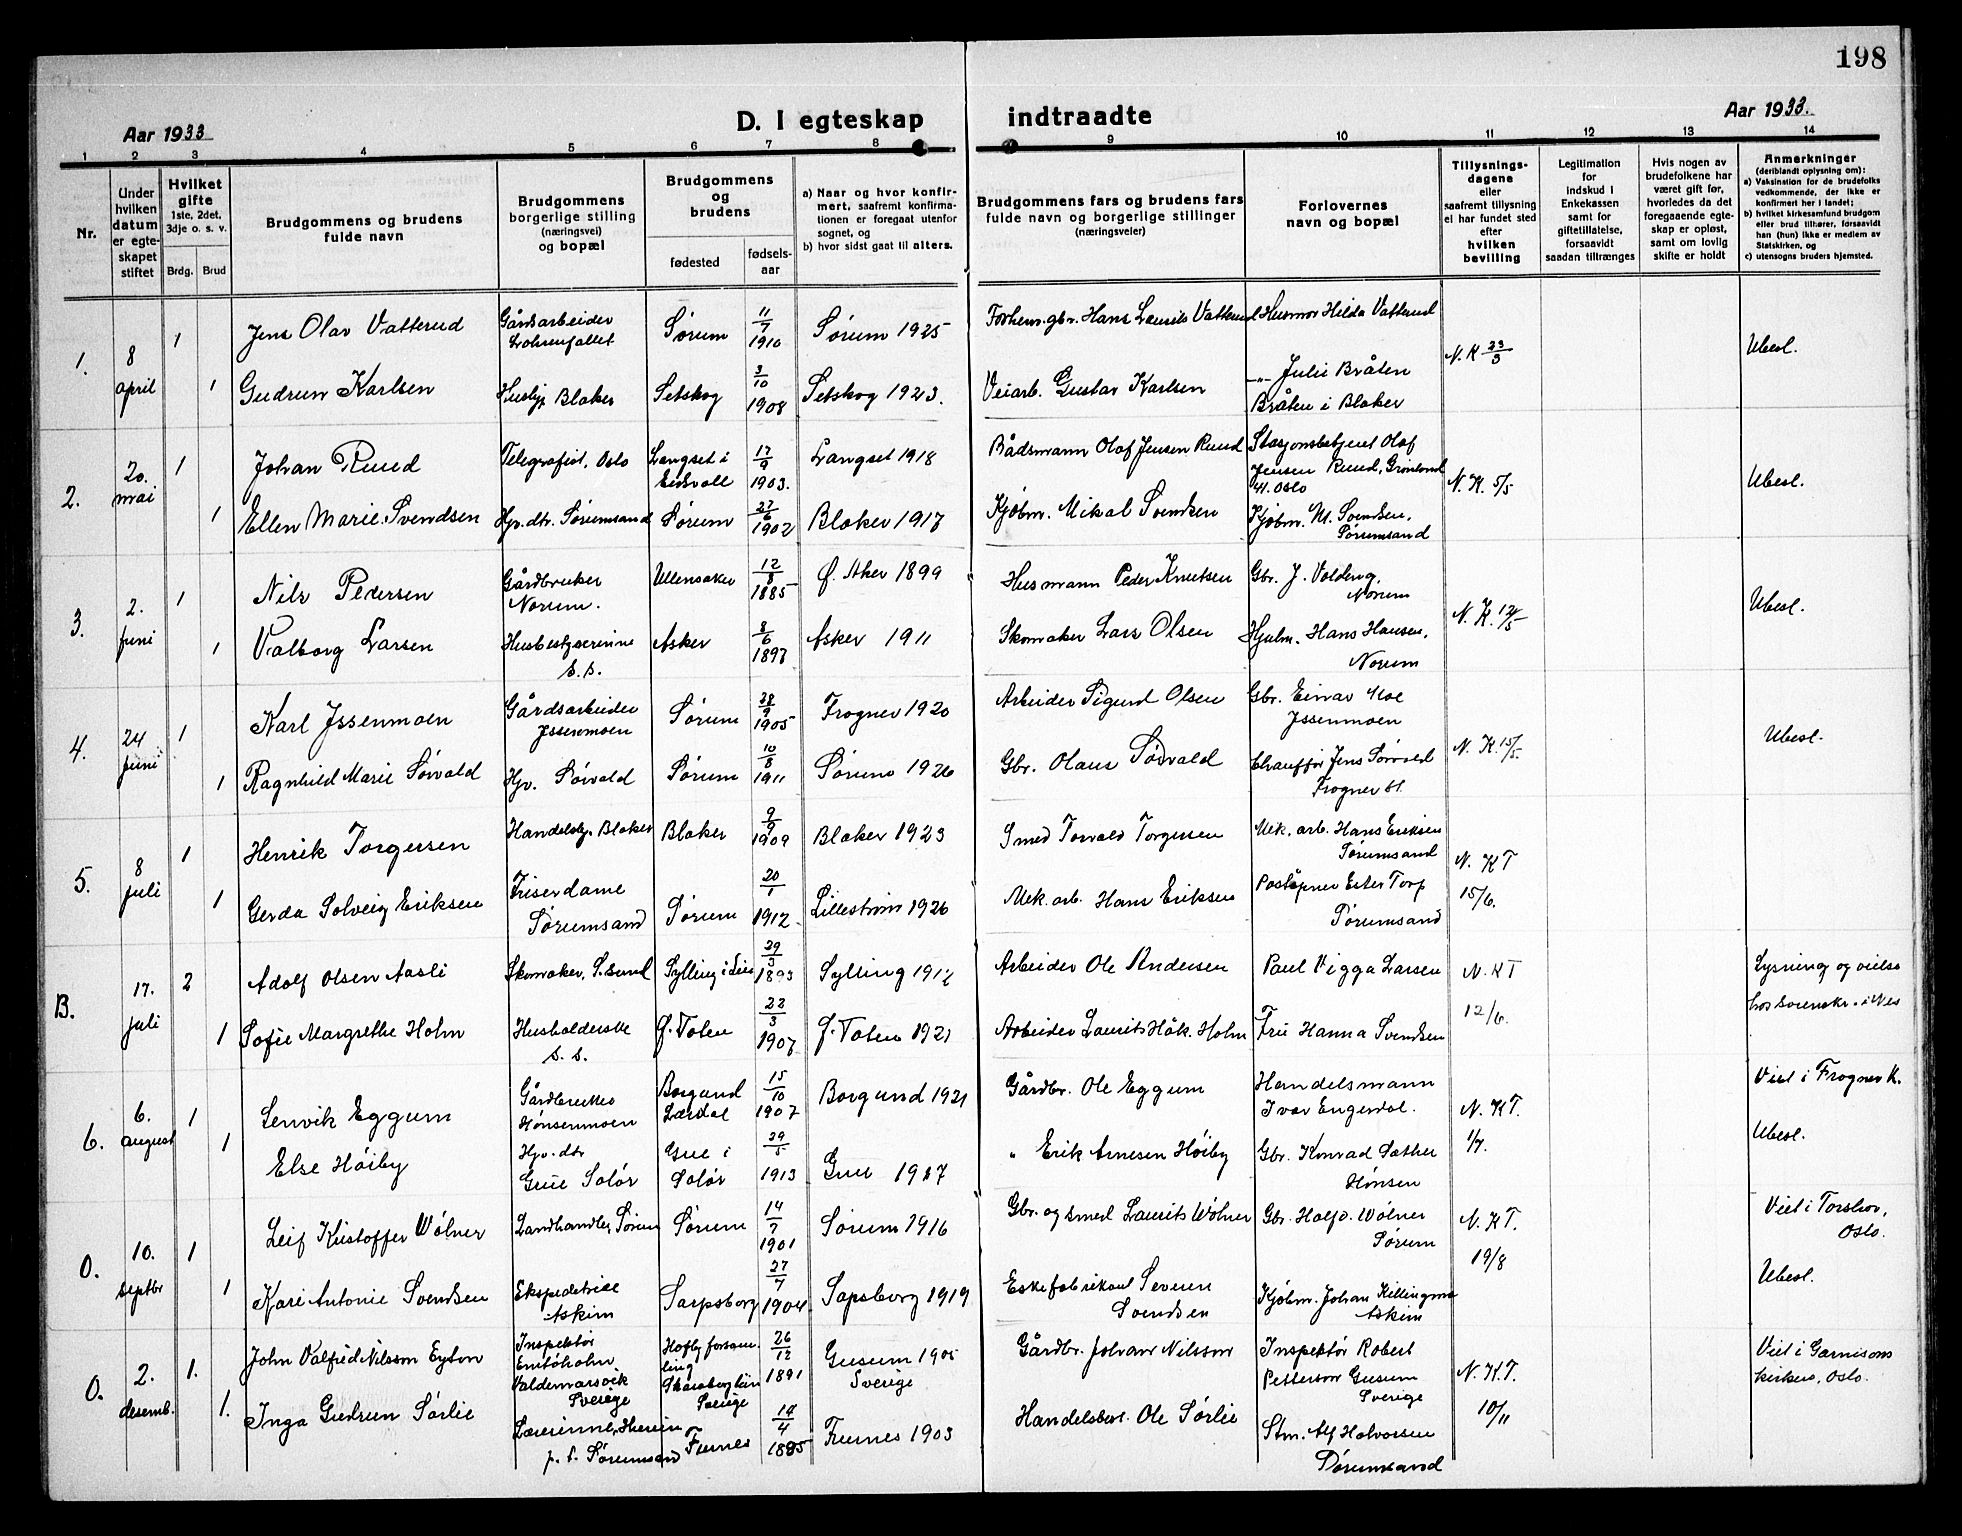 198
Aar 1933
D. I egteskap indtraadte
Aar 1933.
1 2 3 4 5 6 7 8 9 10 11 12 13 14
Nr.
Under hvilken datum er egteskapet stiftet
Hvilket gifte
1ste, 2det, 3dje o. s. v.
Brdg. Brud
Brudgommens og brudens
fulde navn
Brudgommens
borgerlige stilling
(næringsvei)
og bopæl
Brudgommens
og
brudens
fødested
fødsels-
aar
a) Naar og hvor konfir-
mert, saafremt konfirma-
tionen er foregaat utenfor
sognet, og
b) hvor sidst gaat til alters.
Brudgommens fars og brudens fars
fulde navn og borgerlige stillinger
(næringsveier)
Forlovernes
navn og bopæl
Tillysnings-
dagene
eller
saafremt tillysning
ei har fundet sted
efter
hvilken
bevilling
Legitimation
for
indskud i
Enkekassen
samt for
giftetillatelse,
forsaavidt
saadan tiltrænges
Hvis nogen av
brudefolkene har
været gift før,
hvorledes da det
foregaaende egte-
skap er opløst,
samt om lovlig
skifte er holdt
Anmerkninger
(deriblandt oplysning om):
a) Vaksination for de brudefolks
vedkommende, der ikke er
konfirmert her i landet;
b) hvilket kirkesamfund brudgom
eller brud tilhører, forsaavidt
han (hun) ikke er medlem av
Statskirken, og
c) utensogns bruders hjemsted.
1. 8 april 1 Jens Olav Vatterud Gårdsarbeider Sørum 11/7 1910 Sørum 1925 Hans Laurits Vatterud Husmor Hilda Vatterud N. K 23/3 Ubesl.
1 Gudrun Karlsen Blaker Setskog 3/10 1908 Setskog 1923. Veiarb. Gustav Karlsen Julie Bråten
Bråten i Blaker
2. 20. mai 1 Johan Ruud Telegrafist, Oslo Langset i Eidsvoll 17/9 1903. Langset 1918 Bådsmann Olaf Jensen Ruud Stasjonsbetjent Olaf
Jensen Ruud, Grønland
41. Oslo N. K. 5/5 Ubesl.
1 Ellen Marie Svendsen Hjv. dtr. Sørumsand Sørum 27/6 1902 Blaker 1917 Kjøbm. Mikal Svendsen Kjøbm. M. Svendsen,
Sørumsand
3. 2. juni 1 Nils Pedersen Gårdbruker Norum. Ullensaker 12/8 1885 Ø. Aker 1899 Husmann Peder Knutsen Gbr. J. Voldeng,
Norum N. K. 12/5 Ubesl.
1 Valborg Larsen Husbestyrerinne s. s. Asker 8/6 1897 Asker 1911 Skomaker Lars Olsen Hjulm. Hans Hansen,
Norum
4. 24 juni 1 Karl Jssenmoen Gårdsarbeider Jssenmoen Sørum 28/9 1905 Frogner 1920 Arbeider Sigurd Olsen Gbr. Einar Moe
Jssenmoen N. K. 15/5. Ubesl.
1 Ragnhild Marie Sørvald Hjv. Sørvald Sørum 10/8 1911 Sørum 1926 Gbr. Olaus Sørvald Chauffør Jens Sørvald
Frogner st.
5. 8 juli 1 Henrik Torgersen Handelsbj. Blaker Blaker 9/9 1909 Blaker 1923 Smed Torvald Torgersen Mek. arb. Hans Eriksen
Sørumsand N. K T
15/6.
1 Gerda Solveig Eriksen Friserdame Sørumsand Sørum 20/1 1912. Lillestrøm 1926 Mek. arb. Hans Eriksen Poståpner Ester Torp
Sørumsand
B. 17. juli 2 Adolf Olsen Aasli Skomaker, S.sund Sylling i Lier 29/3 1893 Sylling 1912 Arbeider Ole Andersen Paul Vigga Larsen N. K T
12/6. Lysning og vielse
1 Sofie Margrethe Holm Husholderske s. s. Ø. Toten 22/3 1907 Ø. Toten 1921 Arbeider Laurits Håk. Holm Fru Hanna Svendsen
6. 6. august 1 Lenvik Eggum Gårdbruker Hønsenmoen Borgund Lærdal 15/10 1907 Borgund 1921 Gårdbr. Ole Eggum Handelsmann
Ivar Engerdal. N. K T.
1/7. Viet i Frogner k.
1 Else Høiby Hjv. dtr Grue Solør Grue i Solør 29/5 1913 Grue 1927 " Erik Arnesen Høiby Gbr. Konrad Sæther
Hønsen Ubesl.
0. 10. septbr 1 Leif Kristoffer Wølner Landhandler, Sørum Sørum 14/7 1901 Sørum 1916 Gbr. og smed Laurits Wølner Gbr. Halfd. Wølner
Sørum N. K T.
19/8 Viet i Torshov,
Oslo.
1 Kari Antonie Svendsen Ekspeditrise Askim Sarpsborg 27/7 1904 Sapsborg 1919 Eskefabrikant Severin
Svendsen Kjøbm. Johan Killingmo
Askim Ubesl.
0. 2. desemb. 1. John Valfrid Nilsson Inspektør Valdemarsvik Sverige Skaraborg län Sverige 26/12 1891 Gusum 1905
Sverige Gårdbr. Johan Nilsson Inspektør Robert
Petterson Gusum
Sverige N. K. T.
10/11 Viet i Garnisons
kirken, Oslo.
1. Inga Gudrun Sørlie Lærerinne p. t. Sørumsand Furnes 14/4 Furnes 1903 Handelsbest. Ole Sørlie Stm. Alf Halvorsen
Sørumsand